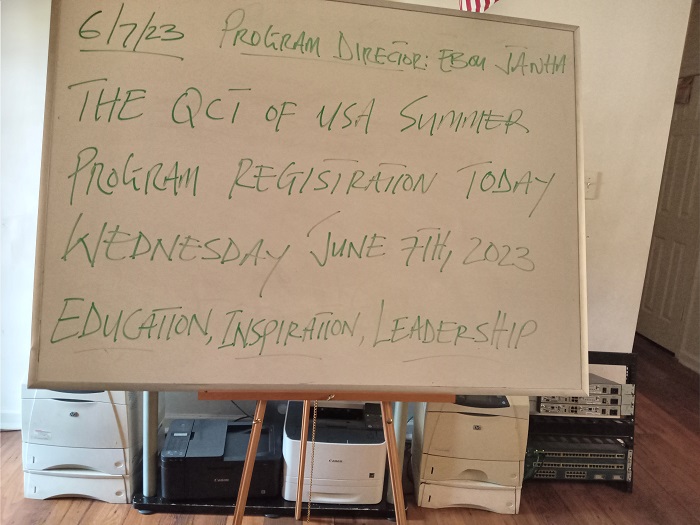 6/7/23 PROGRAM DIRECTOR: EBOU JANHA
THE QCT OF USA SUMMER
PROGRAM REGISTRATION TODAY
WEDNESDAY JUNE 7TH, 2023
EDUCATION, INSPIRATION, LEADERSHIP
Canon
Canon